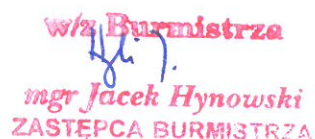 w/z Burmistrza
mgr Jacek Hynowski
ZASTĘPCA BURMISTRZA